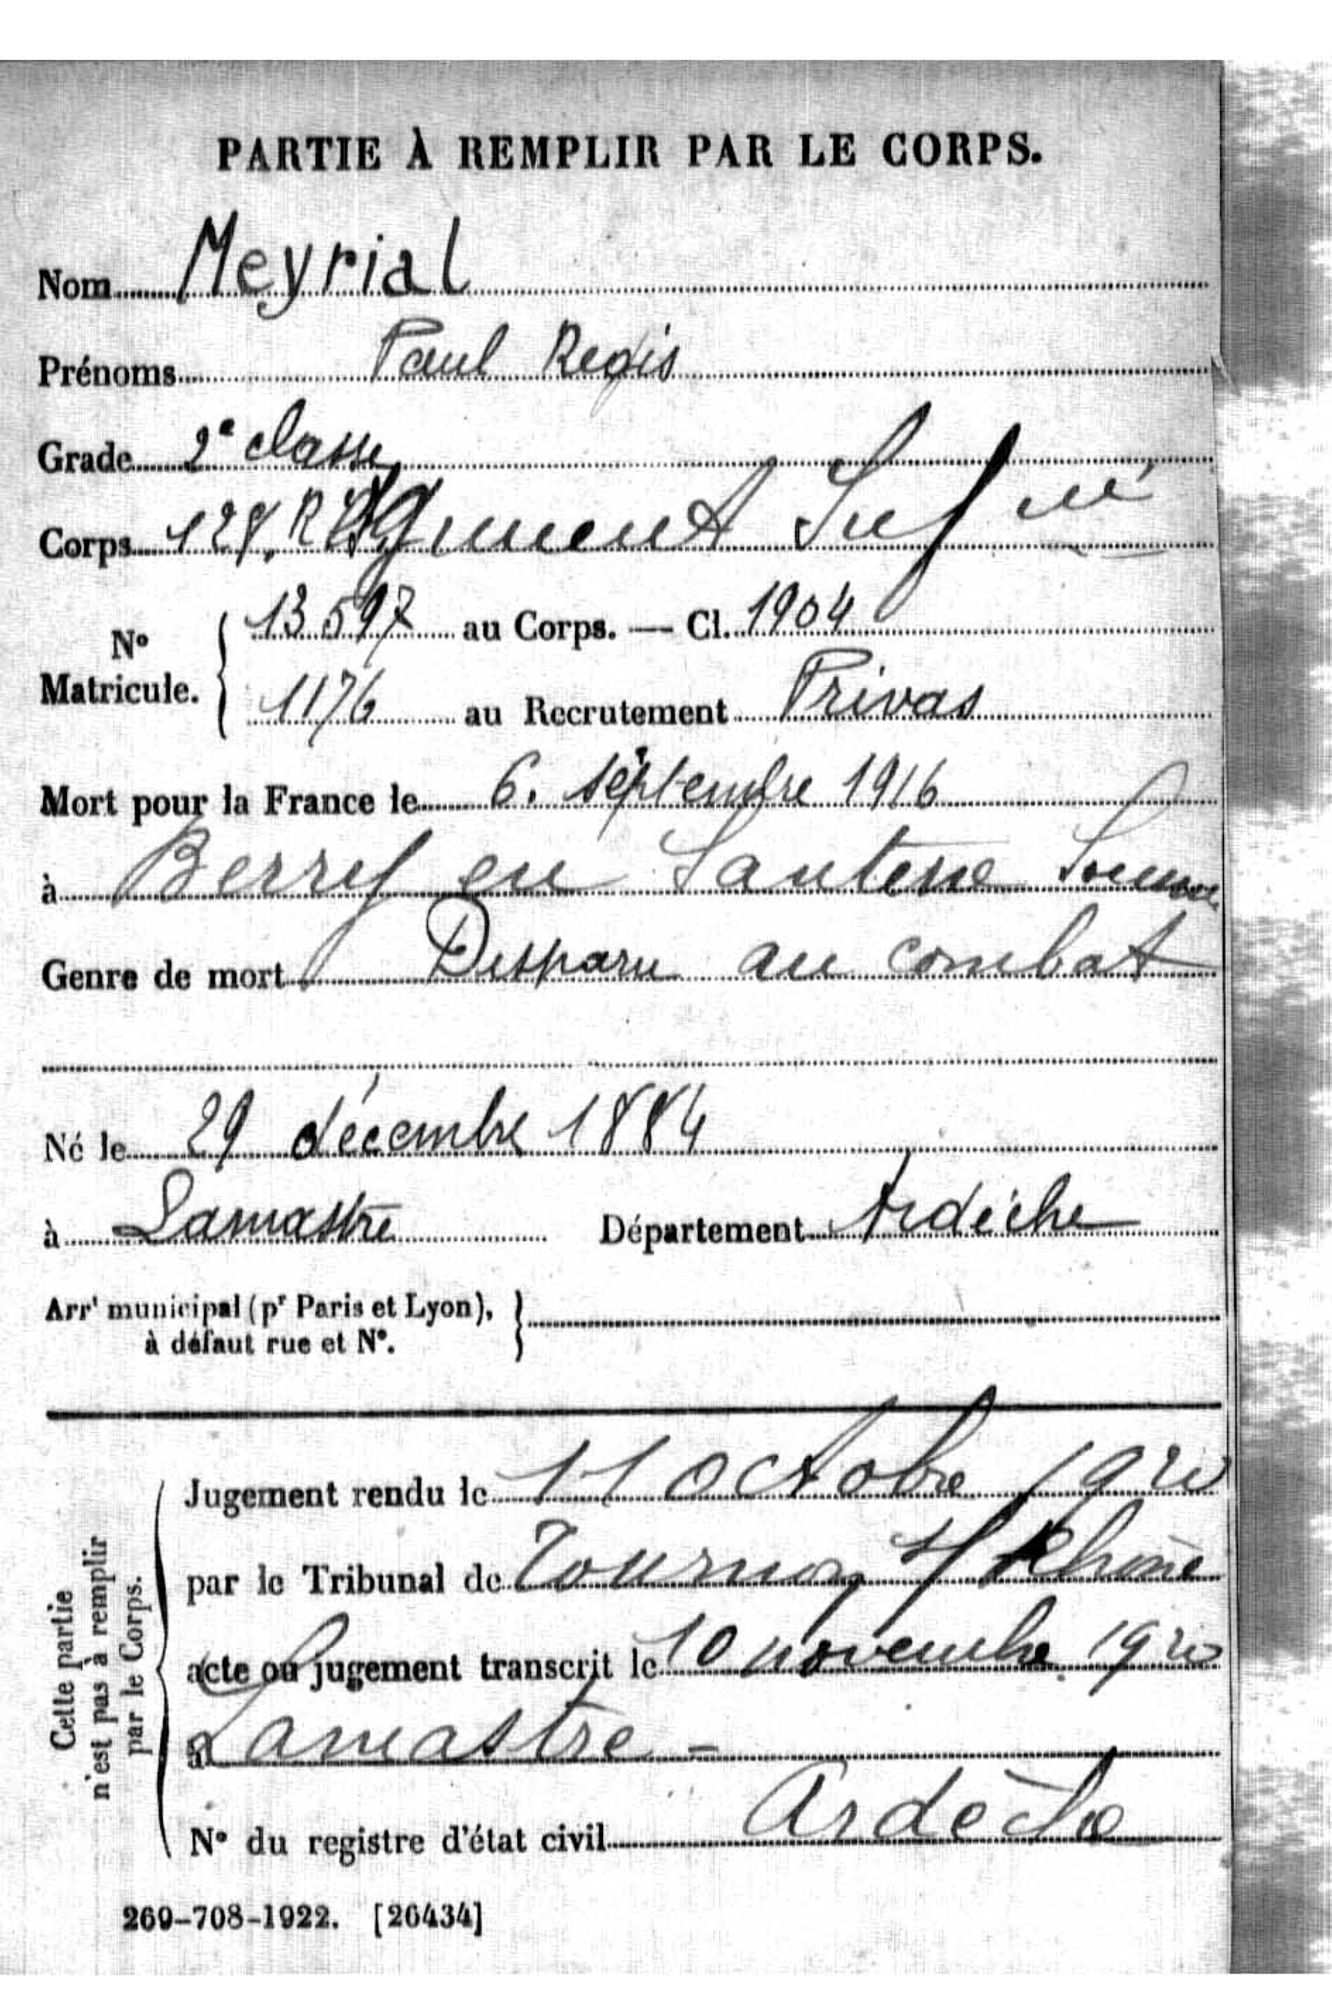 PARTIE À REMPLIR PAR LE CORPS.
Nom Meyrial
Prénoms Paul Regis
Grade 2e classe
Corps 128. Régiment Inf rie
No Matricule. 13597 au Corps. — Cl. 1904
1176 au Recrutement Privas
Mort pour la France le 6. septembre 1916
à Berny en Santerre Somme
Genre de mort Disparu au combat
Né le 29 décembre 1884
à Lamastre Département Ardèche
Arrt municipal (pr Paris et Lyon), à défaut rue et No.
Cette partie n'est pas à remplir par le Corps.
Jugement rendu le 11 octobre 1920
par le Tribunal de Tournon s/ Rhône
acte ou jugement transcrit le 10 novembre 1920
à Lamastre -
No du registre d'état civil Ardèche
269-708-1922. [26434]